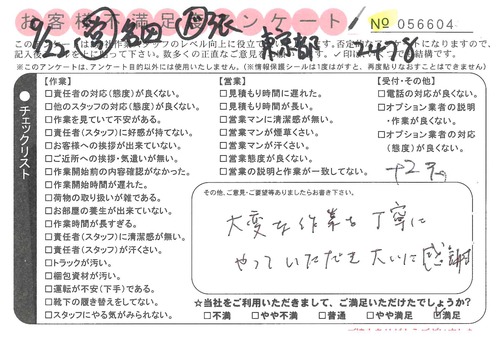 お客様不満足度アンケート
No 056604
東京都
※このアンケートは、アンケート目的以外には使用いたしません。(※情報保護シールは1度はがすと、再度貼りなおすことはできません)
チェックリスト
【作業】
□責任者の対応(態度)が良くない。
□他のスタッフの対応(態度)が良くない。
□作業を見ていて不安がある。
□責任者(スタッフ)に好感が持てない。
□お客様への挨拶が出来ていない。
□ご近所への挨拶・気遣いが無い。
□作業開始前の内容確認がなかった。
□作業開始時間が遅れた。
□荷物の取り扱いが雑である。
□お部屋の養生が出来ていない。
□作業時間が長すぎる。
□責任者(スタッフ)に清潔感が無い。
□責任者(スタッフ)が汗くさい。
□トラックが汚い。
□梱包資材が汚い。
□運転が不安(下手)である。
□靴下の履き替えをしてない。
□スタッフにやる気がみられない。
【営業】
□見積もり時間に遅れた。
□見積もり時間が長い。
□営業マンに清潔感が無い。
□営業マンが煙草くさい。
□営業マンが汗くさい。
□営業態度が良くない。
□営業の説明と作業が一致してない。
【受付・その他】
□電話の対応が良くない。
□オプション業者の説明
・作業が良くない。
□オプション業者の対応
(態度)が良くない。
その他、ご意見・ご要望等ありましたらお書き下さい。
大変な作業も丁寧に
やっていただき大いに感謝
☆当社をご利用いただきまして、ご満足いただけたでしょうか?
□不満 □やや不満 □普通 □やや満足 ☑満足